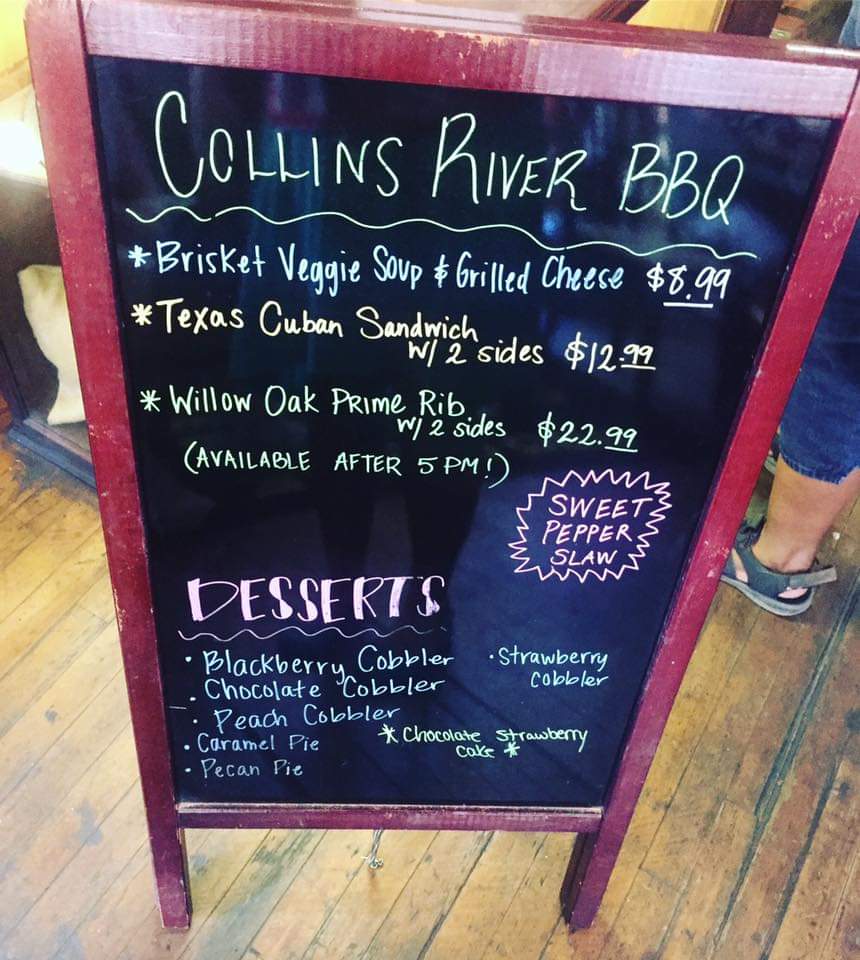 COLLINS RIVER BBQ
* Brisket Veggie Soup & Grilled Cheese $8.99
* Texas Cuban Sandwich
w/ 2 sides $12.99
* Willow Oak Prime Rib
w/ 2 sides $22.99
(AVAILABLE AFTER 5 PM!)
SWEET
PEPPER
SLAW
DESSERTS
· Blackberry Cobbler
· Chocolate Cobbler
· Peach Cobbler
· Caramel Pie
· Pecan Pie
· Strawberry
Cobbler
* Chocolate Strawberry
Cake *